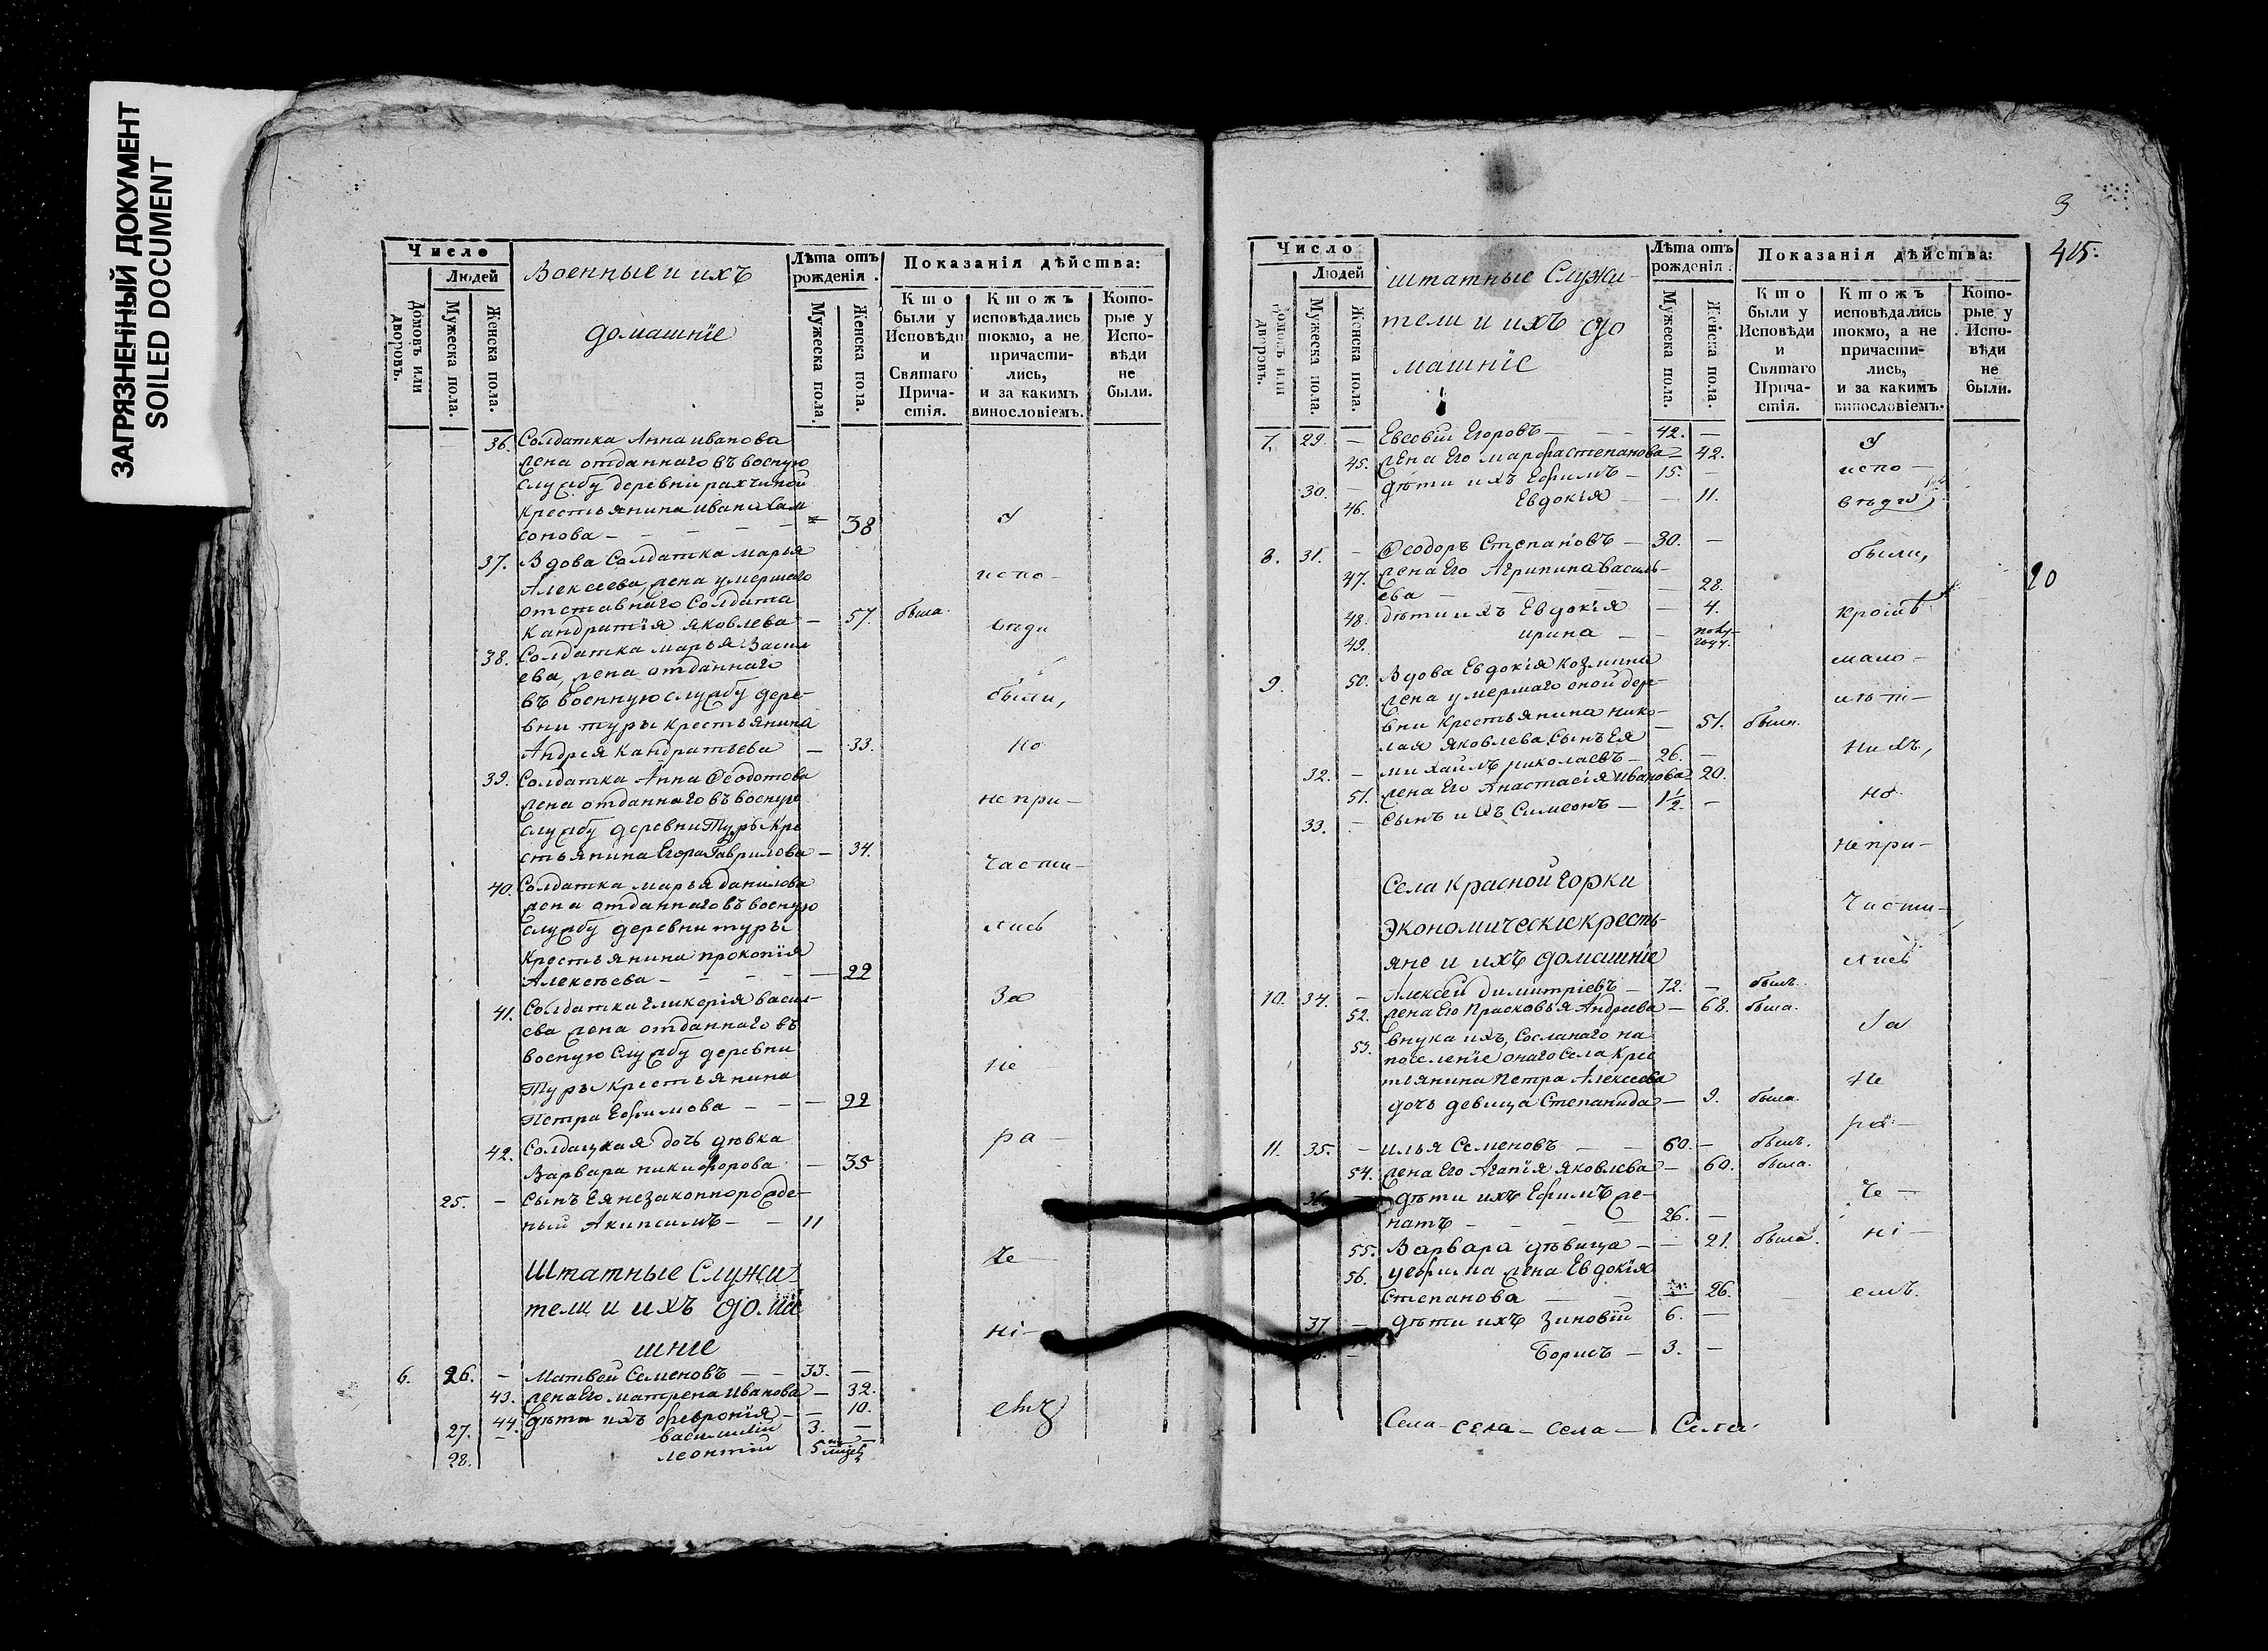 ЗАГРЯЗНЕННЫЙ ДОКУМЕНТ
SOILED DOCUMENT
Число
Людей
Домовъ или дворовъ.
Мужеска пола.
Женска пола.
Военные и ихъ
домашнїе
Лѣта отъ рожденія.
Мужеска пола.
Женска пола.
Показанія дѣйства:
Кто были у Исповѣди и Святаго Причастія.
Ктожъ исповѣдались токмо, а не причастились, и за какимъ винословіемъ.
Которые у Исповѣди не были.
36. Солдатка Анна иванова
жена отданнаго въ воєную
службу деревни рахчиной
крестьянина ивана Сам
сонова — 38
37. Вдова Солдатка марья
Алексеева, жена умершаго
отставнаго Солдата
Кандратїя яковлева — 57. была.
38. Солдатка марья Васил
ева, жена отданнаго
въ военную службу дере-
вни туры крестьянина
Андрея Кандратьева — 33.
39. Солдатка Анна Ѳеодотова
жена отданнаго въ военую
службу деревни Туры кре
стьянина Егора Гаврилова — 34.
40. Солдатка марья данилова
жена отданнаго въ военую
службу деревни туры
крестьянина прокопїя
Алексѣева — 22
41. Солдатка гликерїя васил-
ева жена отданнаго въ
военую Службу деревни
Туры крестьянина
Петра Ефимова — 22
42. Солдацкая дочь дѣвка
Варвара никифорова — 35
25. — Сынъ Ея незаконнорожде-
ный Акинсимъ — 11
Штатные Служи-
тели и ихъ дома
шнїе
6. 26. — Матвей Семеновъ — 33. —
43. жена Его матрена иванова — 32.
44. Дѣти ихъ февронїя — 10.
27. — василий 3. —
28. леонтїй 5
У
испо-
вѣди
были,
но
не при-
части-
лись
За
не
ра-
че-
ні-
емъ
3
415.
20
Число
Людей
Домовъ или дворовъ.
Мужеска пола.
Женска пола.
штатные Служи-
тели и ихъ до
машнїе
Лѣта отъ рожденія.
Мужеска пола.
Женска пола.
Показанія дѣйства:
Кто были у Исповѣди и Святаго Причастія.
Ктожъ исповѣдались токмо, а не причастились, и за какимъ винословіемъ.
Которые у Исповѣди не были.
7. 29. — Евсевїи Егоровъ — 42. —
45. жена Его марфа степанова — 42.
30. — дѣти ихъ Ефимъ — 15. —
46. Евдокїя — 11.
8. 31. — Ѳеодоръ Степановъ — 30. —
47. жена Его Агрипина василь-
ева — 28.
48. дѣти ихъ Евдокїя — 4.
49. ирина —
9. 50. Вдова Евдокїя козмина
жена умершаго оной дер-
вни крестьянина нико-
лая яковлева. Сынъ Ея — 51. была.
32. — михаилъ николаевъ — 26. —
51. жена Его Анастасїя иванова 20.
33. — Сынъ ихъ Симеонъ — 1 1/2. —
Села Красной Горки
Экономическїе кресть-
яне и ихъ домашнїе
10. 34. — Алексей димитрїевъ — 72. — былъ.
52. жена Его Прасковья Андреева — 68. была.
53. внука ихъ, Сосланаго на
поселенїе онаго Села крес
тьянина Петра Алексеева
дочь девица Степанида — 9. была.
11. 35. — илья Семеновъ — 60. — былъ.
54. жена Его Агапїя яковлева — 60. была.
36. дѣти ихъ Ефимъ же-
натъ — 26. —
55. Варвара дѣвица — 21. была.
56. у ефима жена Евдокїя
Степанова — 26.
37. — дѣти ихъ Зиновїй 6. —
— Борисъ — 3. —
Села — села — села — Села
У
испо-
вѣди
были,
кромѣ
мало-
лѣт-
нихъ,
но
не при-
части-
лись
За
не
ра-
че-
ні-
емъ.